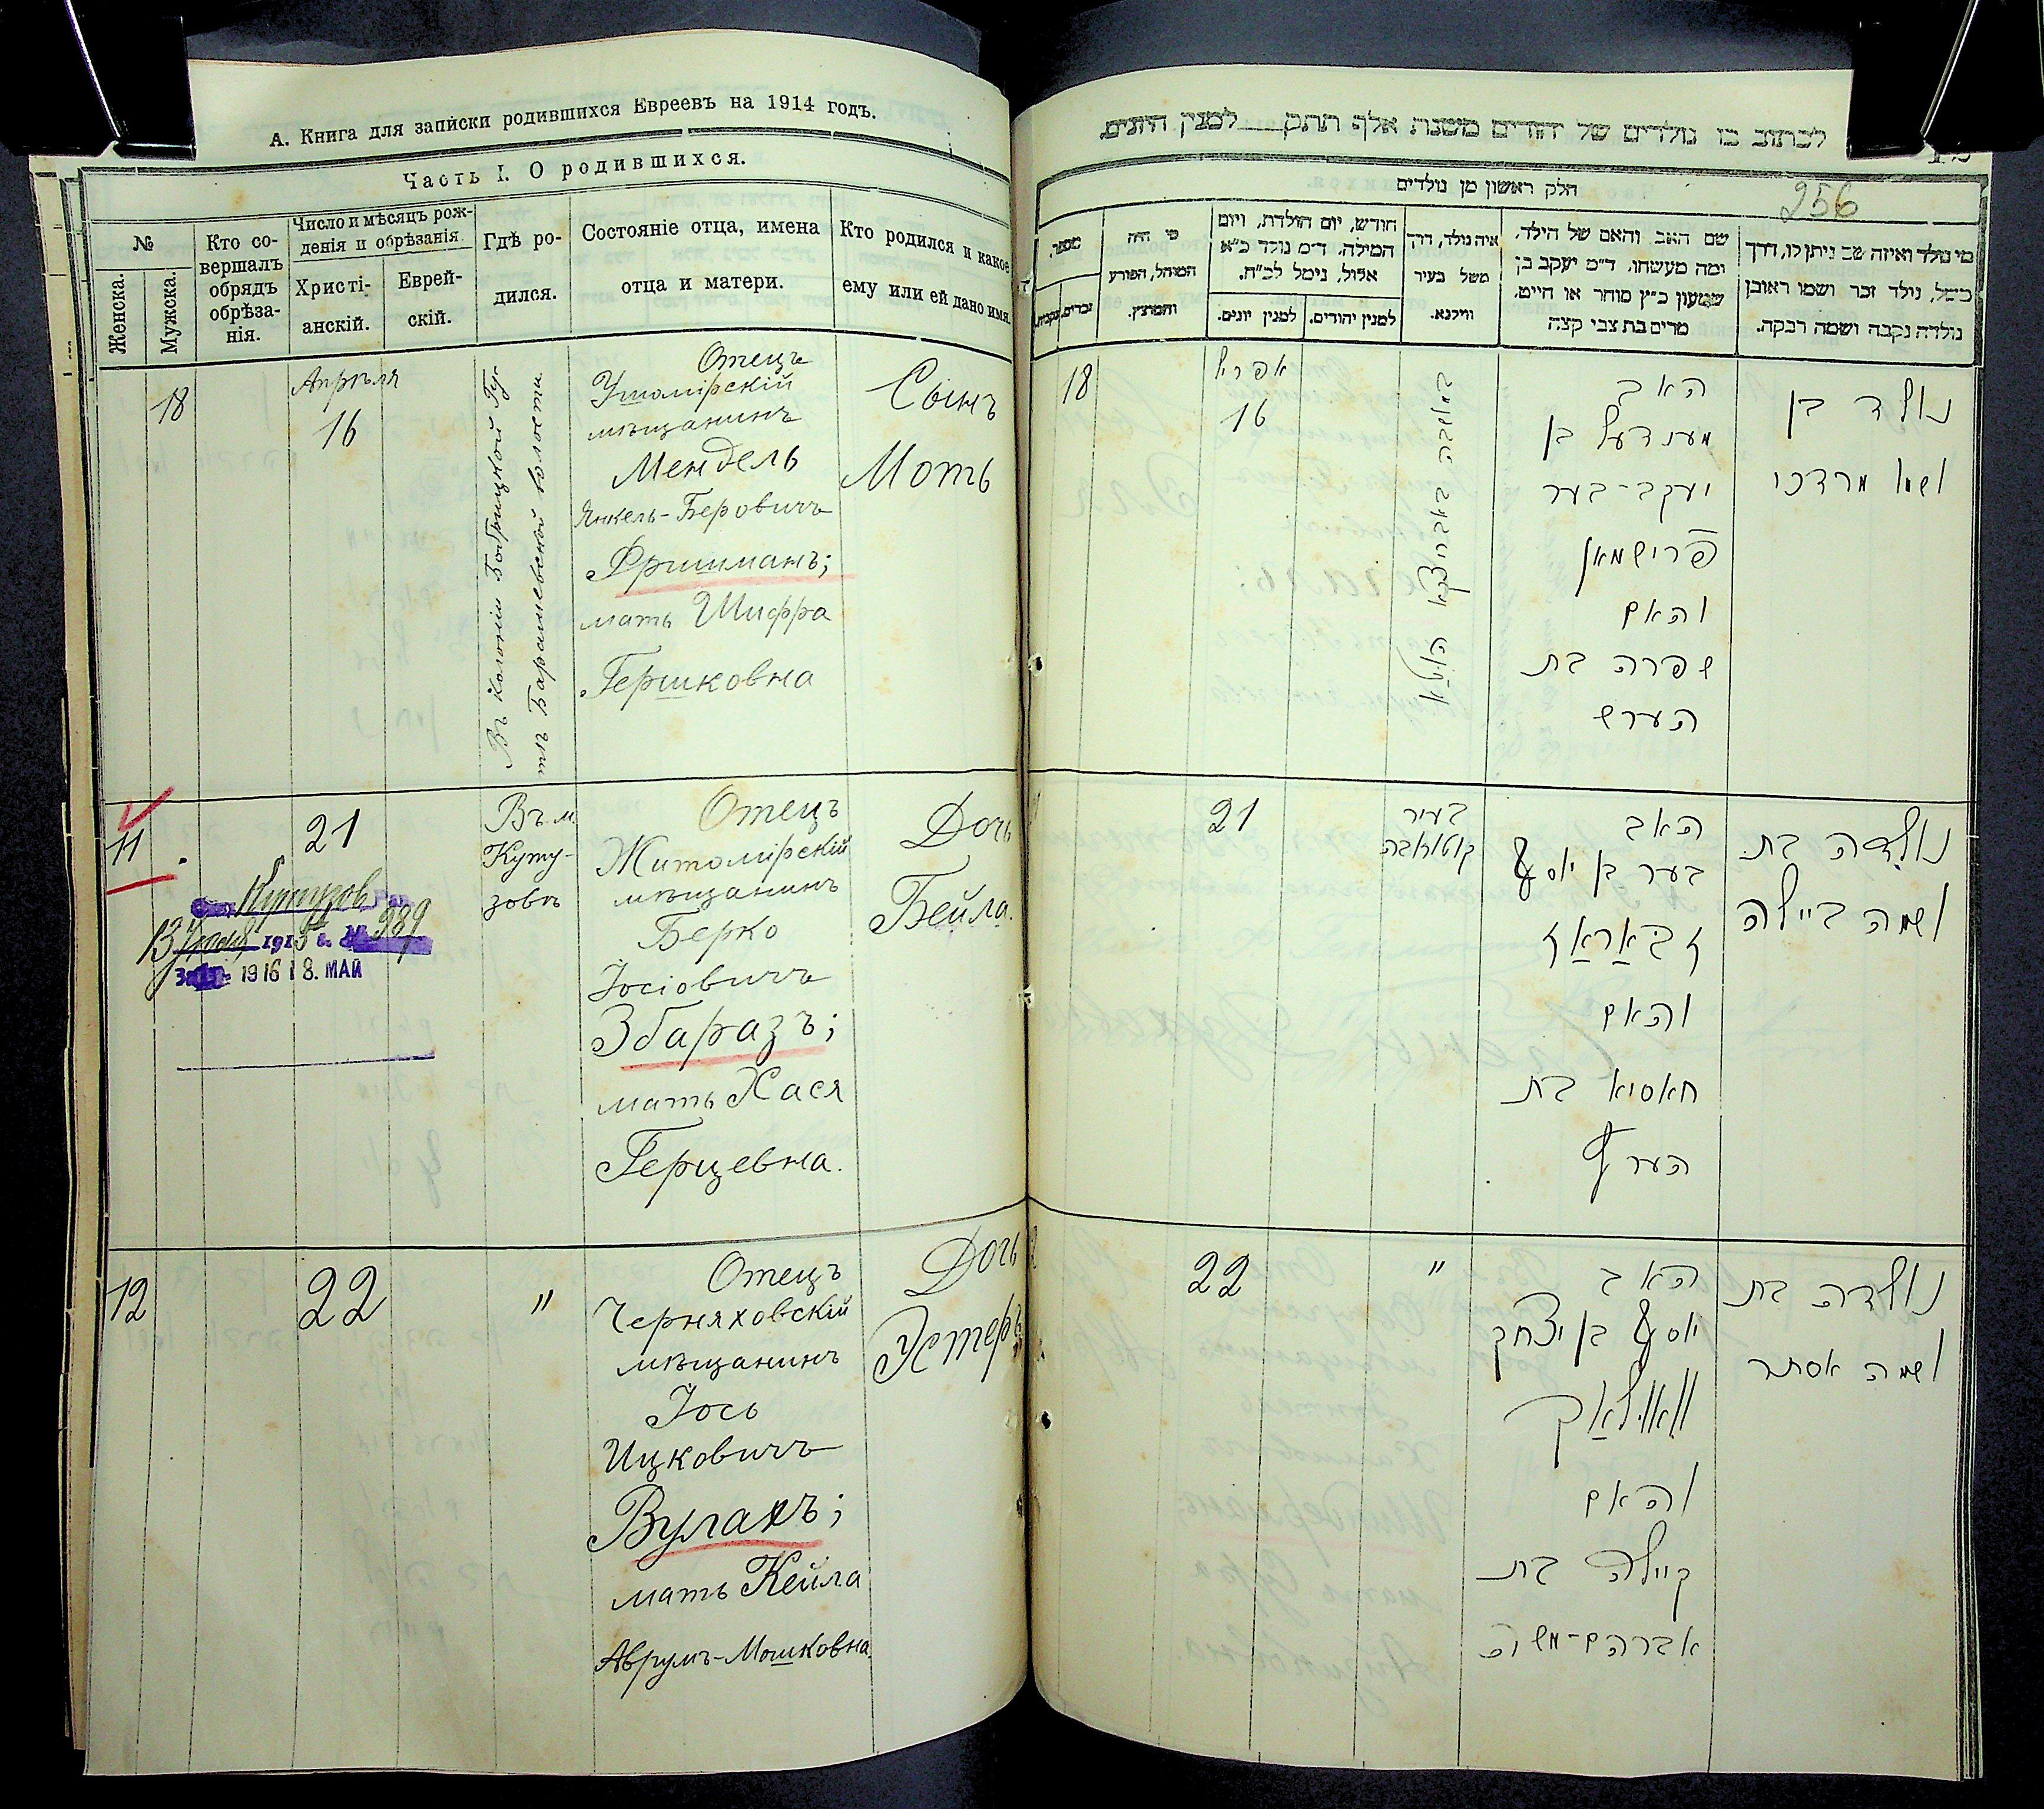 А. Книга для записки родившихся Евреевъ на 1914 годъ.
Часть I. О родившихся.
№
Женска.
Мужска.
Кто совершалъ
обрядъ
обрѣзанія.
Число и мѣсяцъ рожденія и обрѣзанія.
Христіанскій.
Еврейскій.
Гдѣ родился.
Состояніе отца, имена
отца и матери.
Кто родился и какое
ему или ей дано имя.
18
Апрѣля
16
Въ колоніи Бобрицкой Гу-
тѣ Барашевской волости.
Отецъ
Ушомірскій
мѣщанинъ
Мендель
Янкель-Беровичъ
Фришманъ;
мать Шифра
Гершковна
Сынъ
Моть
11
21
Въ м.
Куту-
зовъ
Отецъ
Житомірскій
мѣщанинъ
Берко
Іосіовичъ
Збаразъ;
мать Хася
Герцевна.
Дочь
Бейла.
Кутузов
13
1915 г. № 989
1916 18. МАЙ
12
22
"
Отецъ
Черняховскій
мѣщанинъ
Іось
Ицковичъ
Вулахъ;
мать Кейла
Аврумъ-Мошковна.
Дочь
Эстеръ
לכתוב בו נולדים של יהודים משנת אלף תתק למנין היונים.
256
חלק ראשון מן נולדים
מספר.
זכרים.
נקבות.
מי היה
המוהל, הפורע
והמוצץ.
חודש, יום הולדת, ויום
המילה. ד"מ נולד כ"א
אלול, נימל לכ"ח.
למנין יונים.
למנין יהודים.
איה נולד, דרך
משל בעיר
ווילנא.
שם האב והאם של הילד.
ומה מעשהו. ד"מ יעקב בן
שמעון כ"ץ סוחר או חייט.
מרים בת צבי קצה
מי נולד ואיזה שם ניתן לו, דרך
משל, נולד זכר ושמו ראובן
נולדה נקבה ושמה רבקה.
18
אפריל
16
האב
מענדעל בן
יעקב-בער
פרישמאן
והאם
שפרה בת
הערש
נולד בן
ושמו מרדכי
21
בעיר
קוטוזאבה
האב
בער בן יוסף
זבאראז
והאם
חאסיא בת
הערץ
נולדה בת
ושמה ביילה
22
"
האב
יוסף בן יצחק
והאם
קיילה בת
אברהם-משה
נולדה בת
ושמה אסתר